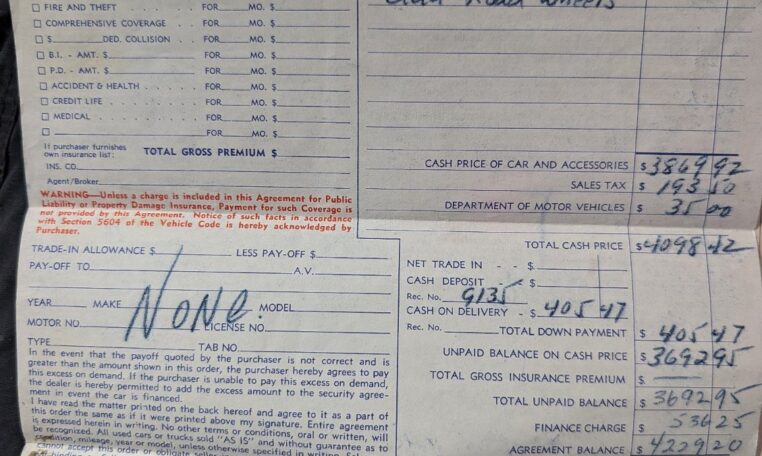 Road Wheels
☐ FIRE AND THEFT . . . . . . . FOR ____ MO. $
☐ COMPREHENSIVE COVERAGE . . . . FOR ____ MO. $
☐ $ ____ DED. COLLISION . . . FOR ____ MO. $
☐ B.I. - AMT. $ ____ FOR ____ MO. $
☐ P.D. - AMT. $ ____ FOR ____ MO. $
☐ ACCIDENT & HEALTH . . . . . FOR ____ MO. $
☐ CREDIT LIFE . . . . . . . . FOR ____ MO. $
☐ MEDICAL . . . . . . . . . FOR ____ MO. $
☐ ____ FOR ____ MO. $
If purchaser furnishes
own insurance list: TOTAL GROSS PREMIUM $
INS. CO.
Agent/Broker
WARNING—Unless a charge is included in this Agreement for Public
Liability or Property Damage Insurance, Payment for such Coverage is
not provided by this Agreement. Notice of such facts in accordance
with Section 5604 of the Vehicle Code is hereby acknowledged by
Purchaser.
CASH PRICE OF CAR AND ACCESSORIES $ 3869 92
SALES TAX $ 193 50
DEPARTMENT OF MOTOR VEHICLES $ 35 00
TRADE-IN ALLOWANCE $ ____ LESS PAY-OFF $
PAY-OFF TO ____ A.V.
YEAR ____ MAKE ____ MODEL
None
MOTOR NO. ____ LICENSE NO.
TYPE ____ TAB NO.
In the event that the payoff quoted by the purchaser is not correct and is
greater than the amount shown in this order, the purchaser hereby agrees to pay
this excess on demand. If the purchaser is unable to pay this excess on demand,
the dealer is hereby permitted to add the excess amount to the security agree-
ment in event the car is financed.
I have read the matter printed on the back hereof and agree to it as a part of
this order the same as if it were printed above my signature. Entire agreement
is expressed herein in writing. No other terms or conditions, oral or written, will
be recognized. All used cars or trucks sold "AS IS" and without guarantee as to
condition, mileage, year or model, unless otherwise specified in writing.
cannot accept this order or obligate
TOTAL CASH PRICE $ 4098 42
NET TRADE IN - - $
CASH DEPOSIT - $
Rec. No. 9135
CASH ON DELIVERY - $ 405 47
Rec. No. ____ TOTAL DOWN PAYMENT $ 405 47
UNPAID BALANCE ON CASH PRICE $ 3692 95
TOTAL GROSS INSURANCE PREMIUM $ —
TOTAL UNPAID BALANCE $ 3692 95
FINANCE CHARGE $ 536 25
AGREEMENT BALANCE $ 4229 20